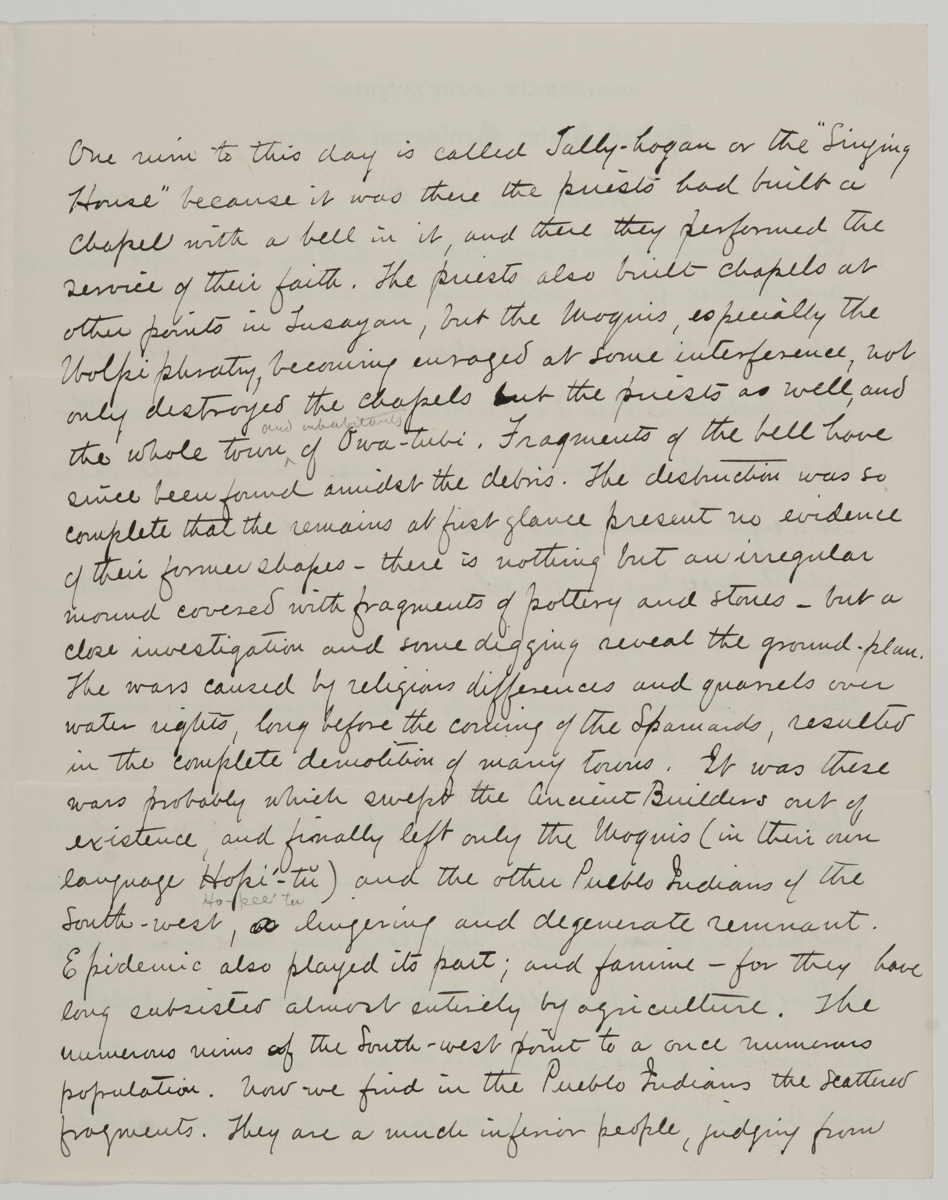 One ruin to this day is called Tally-hogan or the "Singing
House" because it was there the priests had built a
chapel with a bell in it, and there they performed the
service of their faith. The priests also built chapels at
other points in Tusayan, but the Moquis, especially the
Wolpi phratry, becoming enraged at some interference, not
only destroyed the chapels but the priests as well, and
and inhabitants
the whole town ^ of Owa-tubi. Fragments of the bell have
since been found amidst the debris. The destruction was so
complete that the remains at first glance present no evidence
of their former shapes - there is nothing but an irregular
mound covered with fragments of pottery and stones - but a
close investigation and some digging reveal the ground-plan.
The wars caused by religious differences and quarrels over
water rights, long before the coming of the Spaniards, resulted
in the complete demolition of many towns. It was these
wars probably which swept the Ancient Builders out of
existence, and finally left only the Moquis (in their own
language Hopi'-tŭ) and the other Pueblo Indians of the
Ho-pee' tu
South-west, a lingering and degenerate remnant.
Epidemic also played its part; and famine - for they have
long subsisted almost entirely by agriculture. The
numerous ruins of the South-west point to a once numerous
population. Now we find in the Pueblo Indians the scattered
fragments. They are a much inferior people, judging from